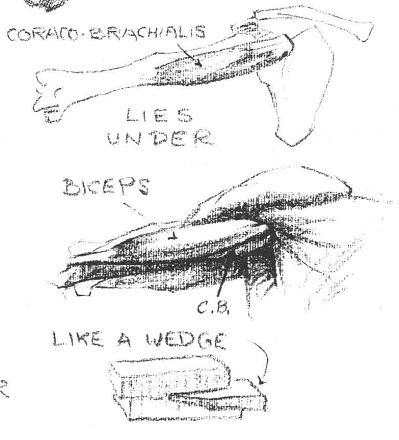 CORACO-BRIACHIALIS
LIES
UNDER
BICEPS
C.B.
LIKE A WEDGE